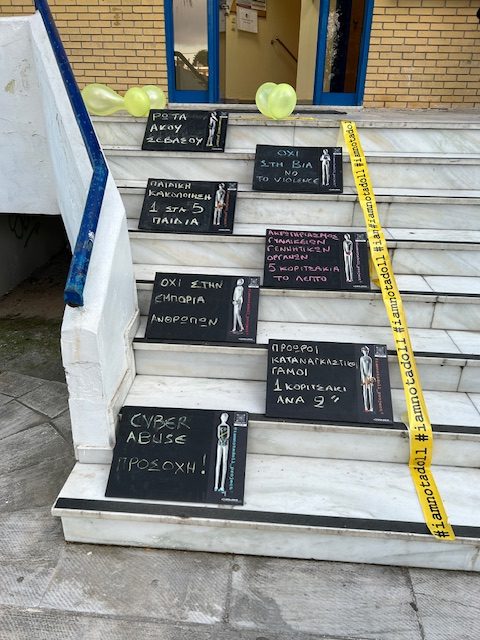 ΡΩΤΑ
ΑΚΟΥ
ΣΕΒΑΣΟΥ
ΟΧΙ
ΣΤΗ ΒΙΑ
NO
TO VIOLENCE
ΠΑΙΔΙΚΗ
ΚΑΚΟΠΟΙΗΣΗ
1 ΣΤΑ 5
ΠΑΙΔΙΑ
ΑΚΡΩΤΗΡΙΑΣΜΟΣ
ΓΥΝΑΙΚΕΙΩΝ
ΓΕΝΝΗΤΙΚΩΝ
ΟΡΓΑΝΩΝ
5 ΚΟΡΙΤΣΑΚΙΑ
ΤΟ ΛΕΠΤΟ
ΟΧΙ ΣΤΗΝ
ΕΜΠΟΡΙΑ
ΑΝΘΡΩΠΩΝ
ΠΡΟΩΡΟΙ
ΚΑΤΑΝΑΓΚΑΣΤΙΚΟΙ
ΓΑΜΟΙ
1 ΚΟΡΙΤΣΑΚΙ
ΑΝΑ 2"
CYBER
ABUSE
ΠΡΟΣΟΧΗ!
#iamnotadoll #iamnotadoll #iamnotadoll #iamnotadoll